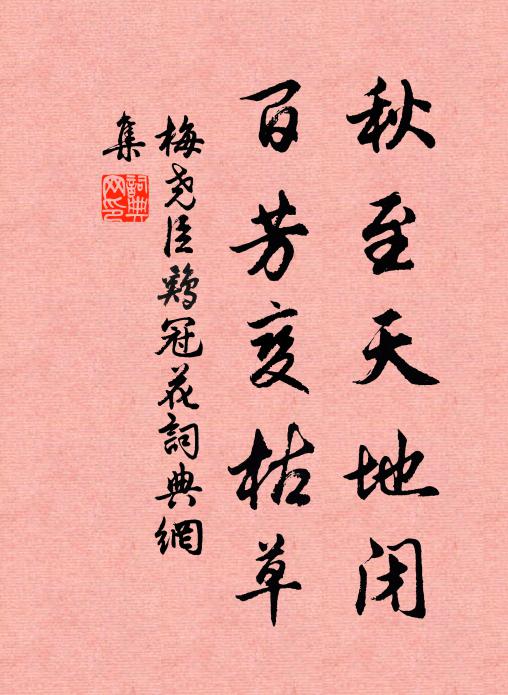 秋至天地闭
百芳变枯草
梅尧臣鸡冠花詞典網
集
詞典
网印